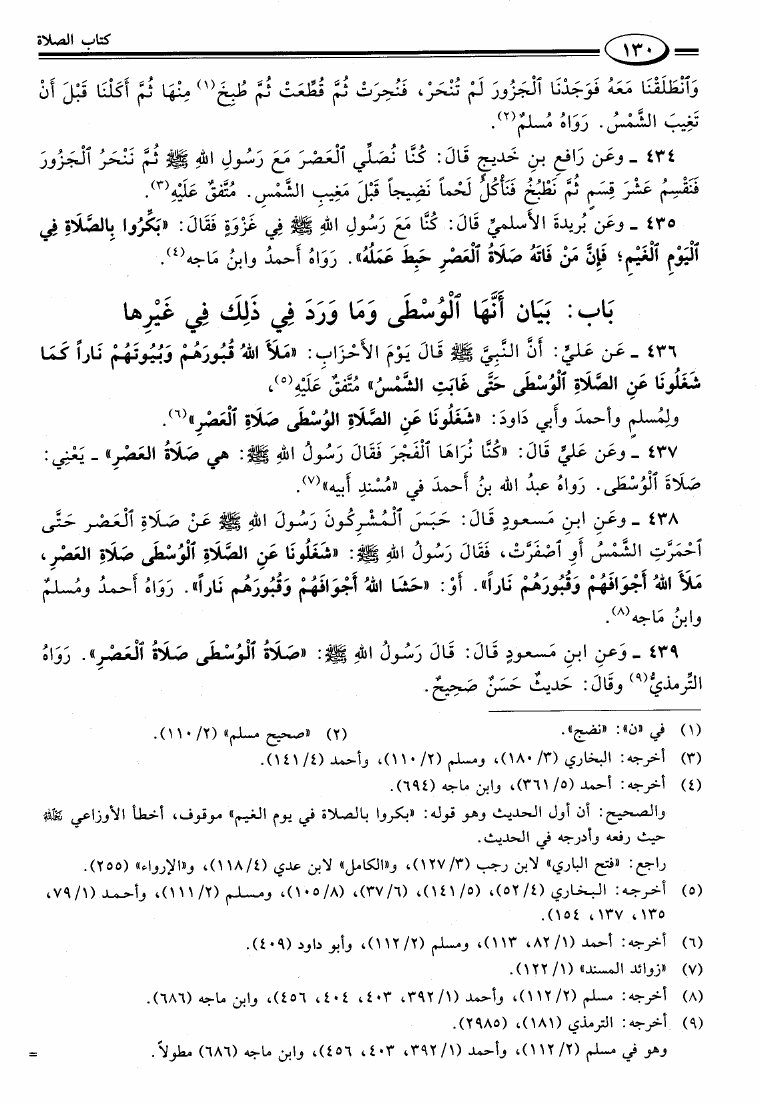 كتاب الصلاة
١٣٠
وَٱنْطَلَقْنَا مَعَهُ فَوَجَدْنَا ٱلْجَزُورَ لَمْ تُنْحَرْ، فَنُحِرَتْ ثُمَّ قُطِّعَتْ ثُمَّ طُبِخَ(١) مِنْهَا ثُمَّ أَكَلْنَا قَبْلَ أَنْ
تَغِيبَ الشَّمْسُ. رَوَاهُ مُسلمٌ(٢).
٤٣٤ ـ وعَن رَافعِ بنِ خَديجٍ قَالَ: كُنَّا نُصَلِّي ٱلْعَصْرَ مَعَ رَسُولِ اللهِ ﷺ ثُمَّ نَنْحَرُ ٱلْجَزُورَ
فَنَقْسِمُ عَشْرَ قِسَمٍ ثُمَّ نَطْبُخُ فَنَأْكُلُ لَحْماً نَضِيجاً قَبْلَ مَغِيبِ الشَّمْسِ. مُتَّفقٌ عَلَيْهِ(٣).
٤٣٥ ـ وعَن بُريدةَ الأَسلميِّ قَالَ: كُنَّا مَعَ رَسُولِ اللهِ ﷺ فِي غَزْوَةٍ فَقَالَ: «بَكِّرُوا بِالصَّلَاةِ فِي
ٱلْيَوْمِ ٱلْغَيْمِ؛ فَإِنَّ مَنْ فَاتَهُ صَلَاةُ ٱلْعَصْرِ حَبِطَ عَمَلُهُ». رَوَاهُ أحمدُ وابنُ ماجه(٤).
بَاب: بَيَان أَنَّهَا ٱلْوُسْطَى وَمَا وَرَدَ فِي ذَلِكَ فِي غَيْرِها
٤٣٦ ـ عَن عَليٍّ: أَنَّ النَّبِيَّ ﷺ قَالَ يَوْمَ الأَحْزَابِ: «مَلَأَ اللهُ قُبُورَهُمْ وَبُيُوتَهُمْ نَاراً كَمَا
شَغَلُونَا عَنِ الصَّلَاةِ ٱلْوُسْطَى حَتَّى غَابَتِ الشَّمْسُ» مُتَّفقٌ عَلَيْهِ(٥)،
ولِمُسلمٍ وأحمدَ وأَبي دَاودَ: «شَغَلُونَا عَنِ الصَّلَاةِ الوُسْطَى صَلَاةِ ٱلْعَصْرِ»(٦).
٤٣٧ ـ وعَن عَليٍّ قَالَ: «كُنَّا نُرَاهَا ٱلْفَجْرَ فَقَالَ رَسُولُ اللهِ ﷺ: هي صَلَاةُ العَصْرِ» ـ يَعْنِي:
صَلَاةَ ٱلْوُسْطَى. رَوَاهُ عبدُ الله بنُ أحمدَ في «مُسْندِ أَبيه»(٧).
٤٣٨ ـ وعَنِ ابنِ مَسعودٍ قَالَ: حَبَسَ ٱلْمُشْرِكُونَ رَسُولَ اللهِ ﷺ عَنْ صَلَاةِ ٱلْعَصْرِ حَتَّى
ٱحْمَرَّتِ الشَّمْسُ أَوِ ٱصْفَرَّتْ، فَقَالَ رَسُولُ اللهِ ﷺ: «شَغَلُونَا عَنِ الصَّلَاةِ ٱلْوُسْطَى صَلَاةِ العَصْرِ،
مَلَأَ اللهُ أَجْوَافَهُمْ وَقُبُورَهُمْ نَاراً». أَوْ: «حَشَا اللهُ أَجْوَافَهُمْ وَقُبُورَهُم نَاراً». رَوَاهُ أَحمدُ ومُسلمٌ
وابنُ مَاجه(٨).
٤٣٩ ـ وَعنِ ابنِ مَسعودٍ قَالَ: قَالَ رَسُولُ اللهِ ﷺ: «صَلَاةُ ٱلْوُسْطَى صَلَاةُ ٱلْعَصْرِ». رَوَاهُ
التِّرمذيُّ(٩) وقَالَ: حَديثٌ حَسَنٌ صَحِيحٌ.
(١) في «ن»: «نضج». (٢) «صحيح مسلم» (٢/ ١١٠).
(٣) أخرجه: البخاري (٣/ ١٨٠)، ومسلم (٢/ ١١٠)، وأحمد (٤/ ١٤١).
(٤) أخرجه: أحمد (٥/ ٣٦١)، وابن ماجه (٦٩٤).
والصحيح: أن أول الحديث وهو قوله: «بكروا بالصلاة في يوم الغيم» موقوف، أخطأ الأوزاعي رحمه الله
حيث رفعه وأدرجه في الحديث.
راجع: «فتح الباري» لابن رجب (٣/ ١٢٧)، و«الكامل» لابن عدي (٤/ ١١٨)، و«الإرواء» (٢٥٥).
(٥) أخرجه: البخاري (٤/ ٥٢)، (٥/ ١٤١)، (٦/ ٣٧)، (٨/ ١٠٥)، ومسلم (٢/ ١١١)، وأحمد (١/ ٧٩،
١٣٥، ١٣٧، ١٥٤).
(٦) أخرجه: أحمد (١/ ٨٢، ١١٣)، ومسلم (٢/ ١١٢)، وأبو داود (٤٠٩).
(٧) «زوائد المسند» (١/ ١٢٢).
(٨) أخرجه: مسلم (٢/ ١١٢)، وأحمد (١/ ٣٩٢، ٤٠٣، ٤٠٤، ٤٥٦)، وابن ماجه (٦٨٦).
(٩) أخرجه: الترمذي (١٨١)، (٢٩٨٥).
وهو في مسلم (٢/ ١١٢)، وأحمد (١/ ٣٩٢، ٤٠٣، ٤٥٦)، وابن ماجه (٦٨٦) مطولاً. =